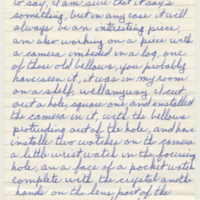 to say, I am sure that it says
something, but in any case it will
always be an interesting piece, I
am also working on a piece with
a camera imbeded in a log, one
of thos old bellows, you probably
have seen it, it was in my room
on a shelf, well anyway I cut
out a hole, square one, and installed
the camera in it, with the bellows
protruding out of the hole, and have
installed two watches on the camera
a little wrist watch in the focusing
hole, an a face of a pocket watch
complete with the crystal and the
hands on the lens, part of the